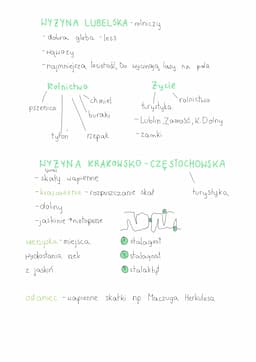 WYŻYNA LUBELSKA - rolniczy
- dobra gleba - less
- wąwozy
- najmniejsza lesistość, bo wycinają lasy na pola
Rolnictwo Życie
pszenica chmiel turystyka rolnictwo
buraki
- Lublin, Zamość, K. Dolny
tytoń rzepak - zamki
WYŻYNA KRAKOWSKO - CZĘSTOCHOWSKA
- skały wapienne turystyka
- krasowienie - rozpuszczanie skał
- doliny
- jaskinie + nietoperze
- miejsca stalagmit
wydostania rzek stalagnat
z jaskiń stalaktyt
ostaniec - wapienne skałki np Maczuga Herkulesa